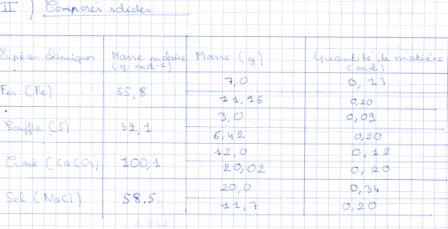 II) Composés solides
Espèces chimiques Masse molaire (g.mol-1) Masse (g) Quantité de matière (mol)
Fer (Fe) 55,8 7,0 0,13
11,16 0,20
Souffre (S) 32,1 3,0 0,09
6,42 0,20
Craie (CaCO3) 100,1 12,0 0,12
20,02 0,20
Sel (NaCl) 58.5 20,0 0,34
11,7 0,20